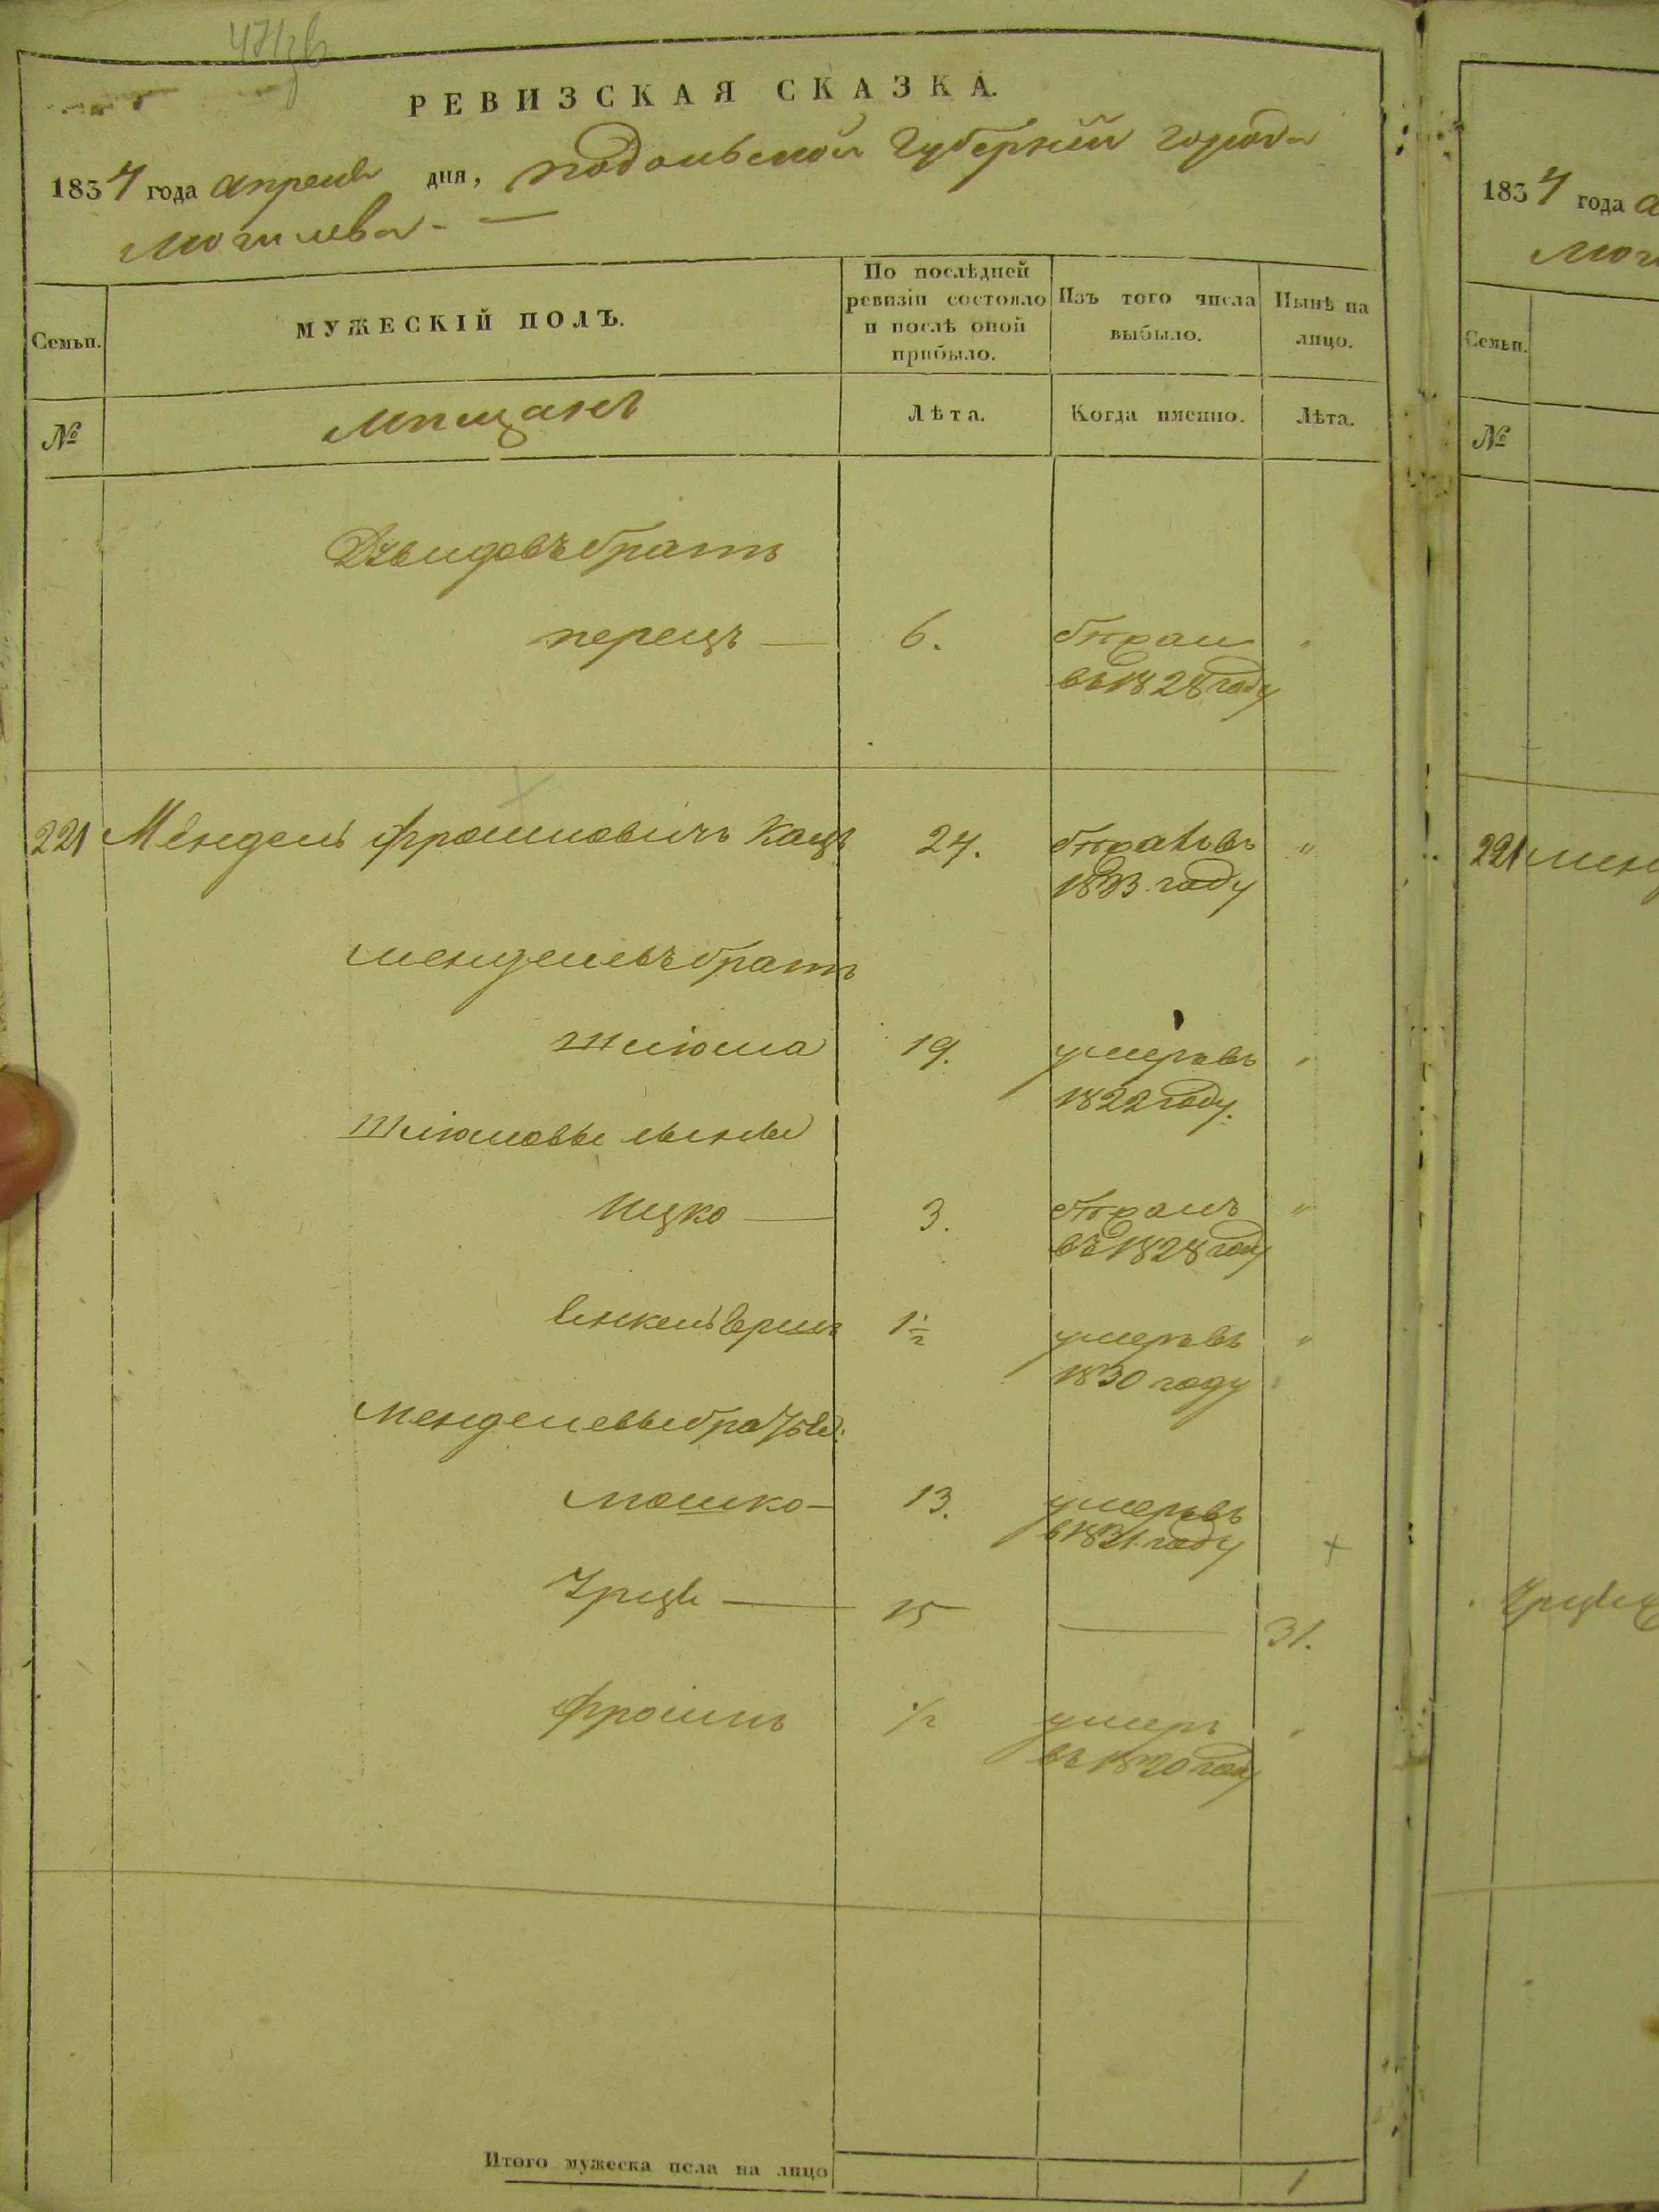 РЕВИЗСКАЯ СКАЗКА.
1834 года апреля дня, подольской Губернии города
Могилева. —
Семьи.
МУЖЕСКІЙ ПОЛЪ.
По послѣдней
ревизіи состояло
и послѣ оной
прибыло.
Изъ того числа
выбыло.
Нынѣ на
лицо.
№
мещанъ
Лѣта.
Когда именно.
Лѣта.
братъ
перецъ —
6.
въ 1828 году
221 Мендель фроимовичъ Кацъ
24.
году
менделевъ братъ
шлiома
19.
умеръ въ
1822 году.
Шлiомовы сыны
Ицко —
3.
въ 1828 году
1 1/2
умеръ въ
1830 году
Менделевы братья:
мошко —
13.
умеръ въ
в 1831. году
—
15
—
31.
фроимъ
1/2
умеръ
въ 1830 году
Итого мужеска пола на лицо
1
1834 года а
Семьи.
№
221 мен